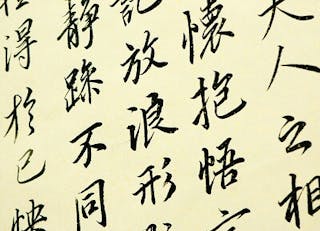 夫人之相
懷抱悟言
託放浪形
靜躁不同
得於己快